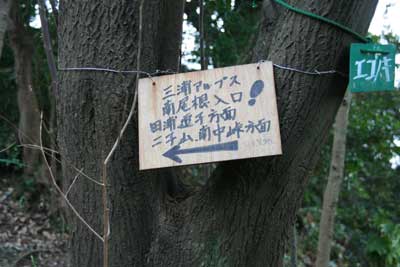 三浦アルプス
南尾根入口!
田浦逗子方面
二子山、南中峠方面
エゴノキ